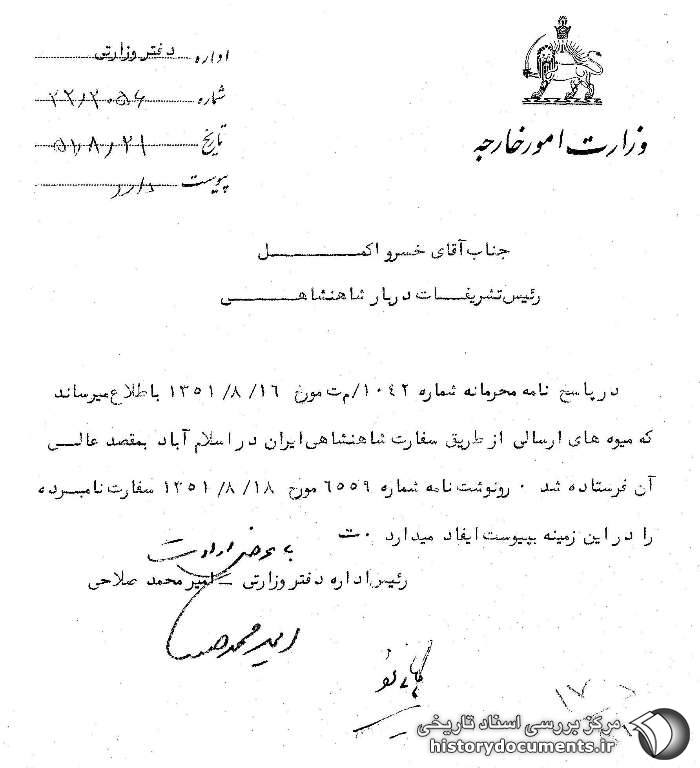 وزارت امور خارجه
اداره دفتر وزارتی
شماره ۲۲/۳۰۵۶
تاریخ ۵۱/۸/۲۱
پیوست دارد
جناب آقای خسرو اکمل
رئیس تشریفات دربار شاهنشاهی
در پاسخ نامه محرمانه شماره ۱۰۴۲/م ت مورخ ۱۳۵۱/۸/۱۶ باطلاع میرساند
که میوه های ارسالی از طریق سفارت شاهنشاهی ایران در اسلام آباد بمقصد عالی
آن فرستاده شد ۰ رونوشت نامه شماره ۶۵۵۹ مورخ ۱۳۵۱/۸/۱۸ سفارت نامبرده
را در این زمینه بپیوست ایفاد میدارد ۰ ت
با عرض ارادت
رئیس اداره دفتر وزارتی – امیر محمد صلاحی
بایگانی شود
۱۷
مرکز بررسی اسناد تاریخی
historydocuments.ir